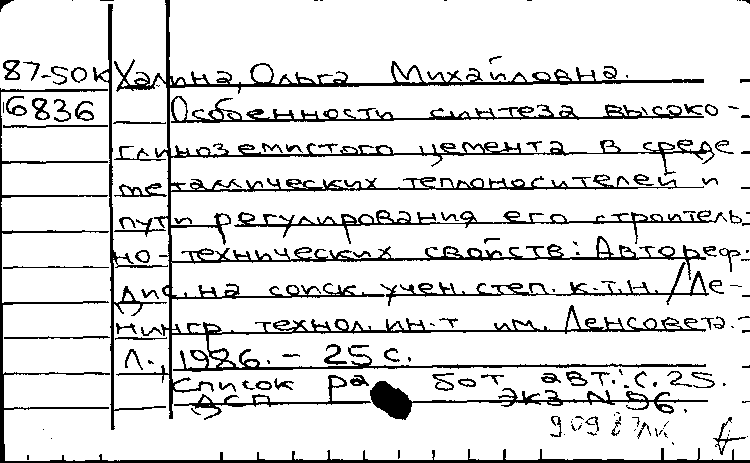 87-50к Халина, Ольга Михайловна.
6836 Особенности синтеза высоко-
глиноземистого цемента в среде
металлических теплоносителей и
пути регулирования его строитель-
но-технических свойств: Автореф.
дис. на соиск. учен. степ. к.т.н. /Ле-
нингр. технол. ин-т им. Ленсовета.
Л., 1986. - 25 с.
Список работ авт.: с. 25.
ДСП Экз N 96.
9.09.87